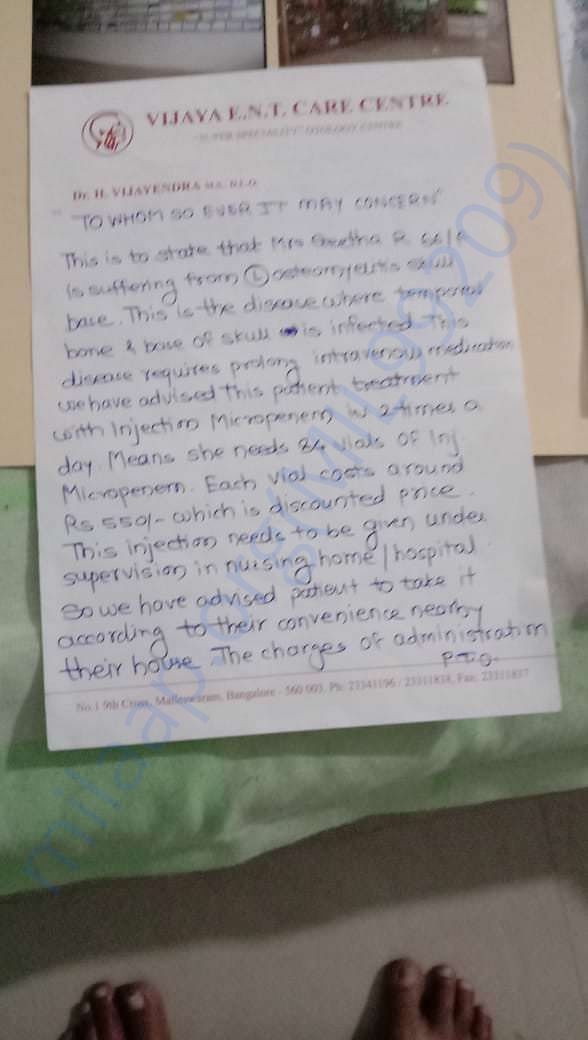 VIJAYA E.N.T. CARE CENTRE
"SUPER SPECIALITY" OTOLOGY CENTRE
Dr. H. VIJAYENDRA M.S. D.L.O.
"TO WHOM SO EVER IT MAY CONCERN"
This is to state that Mrs R 66/F
is suffering from (L) osteomyelitis skull
base. This is the disease where temporal
bone & base of skull is infected. This
disease requires prolong intravenous medication
we have advised this patient treatment
with Injection Micropenem IV 2 times a
day. Means she needs 84 vials of Inj
Micropenem. Each vial costs around
Rs 550/- which is discounted price.
This injection needs to be given under
supervision in nursing home / hospital.
So we have advised patient to take it
according to their convenience nearby
their house. The charges of administration
P.T.O.
No.1 9th Cross, Malleswaram, Bangalore - 560 003. Ph: 23341196 / 23311838, Fax: 23311837
milaap.org(MIL199209)